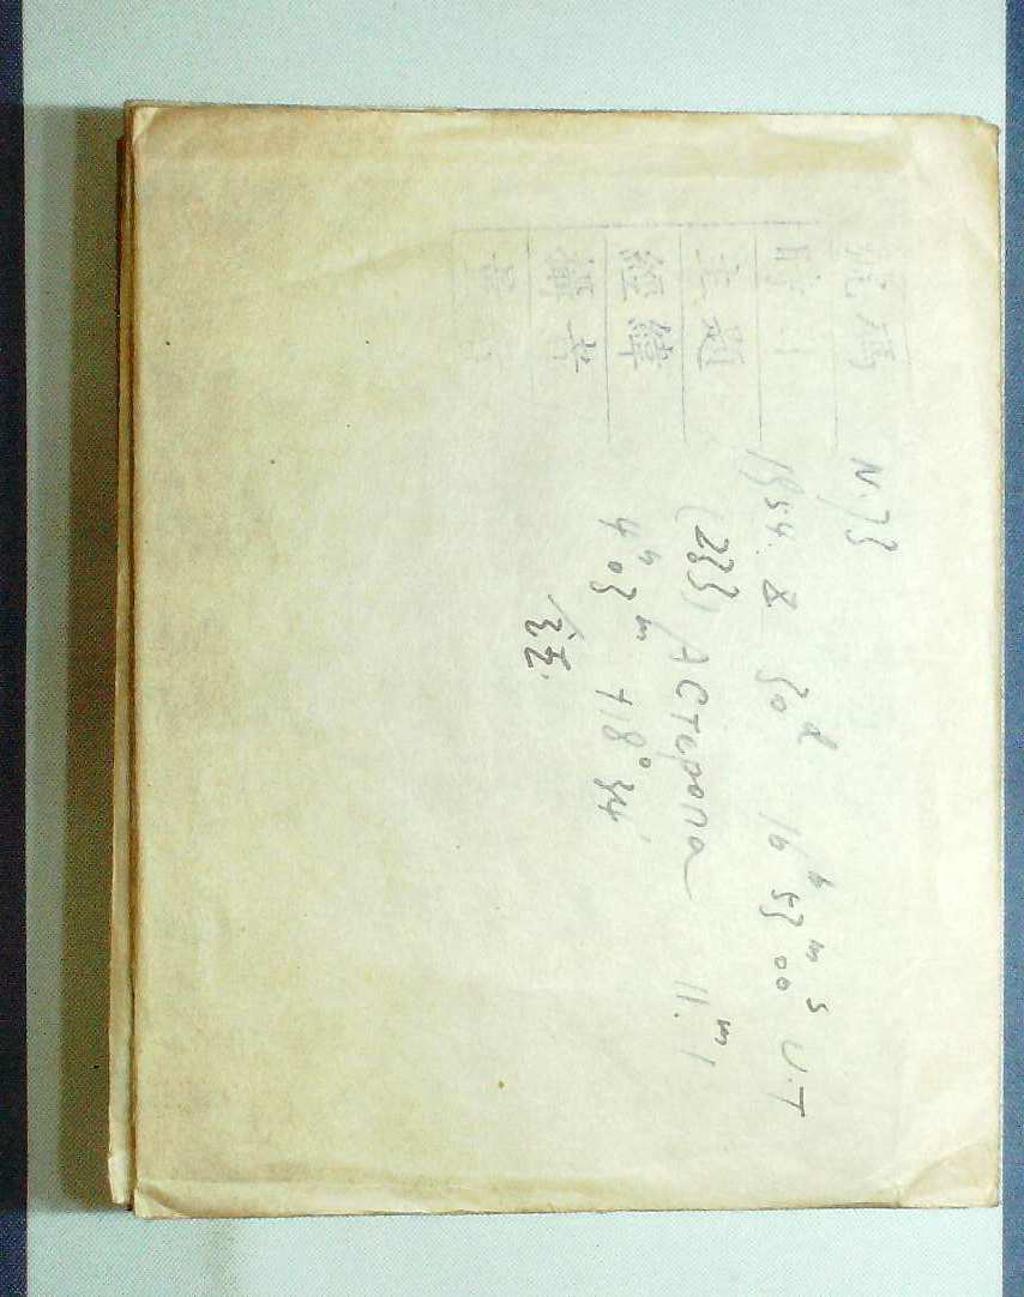 號碼 N. 33
時刻 1954. 8 30ᵈ 16ʰ 53ᵐ 00ˢ U.T
主題 (233) Астеропа 11.ᵐ1
經緯 4ʰ 03ᵐ +18° 34'
攝者